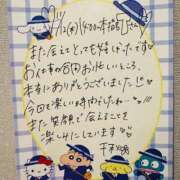 また会えてとっても嬉しかったです♡
お仕事の合間のお忙しいところ、
本当にありがとうございました!!
今回も楽しい時間でしたね〜♪!!!
また笑顔で会えることを
楽しみにしています♡